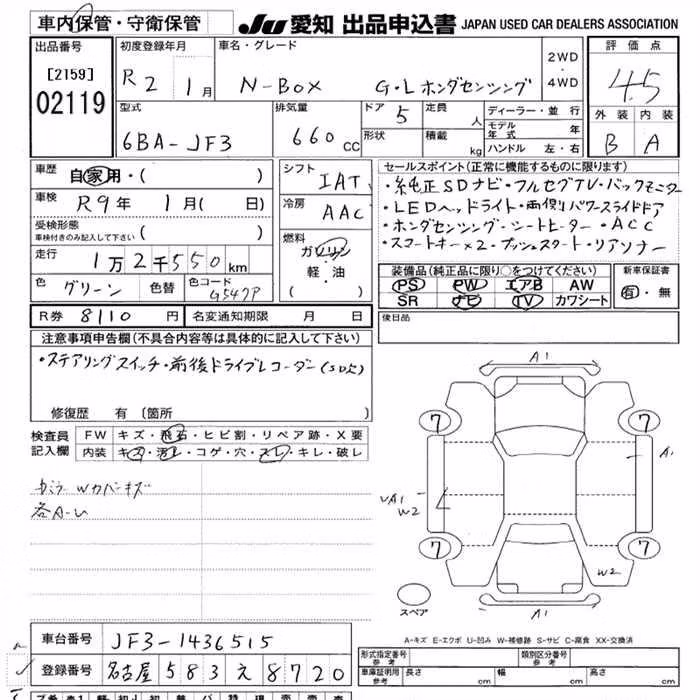 車内保管・守衛保管 JU 愛知 出品申込書 JAPAN USED CAR DEALERS ASSOCIATION
出品番号 初度登録年月 車名・グレード 2WD・4WD 評価点
[2159] R 2 1月 N-BOX G・Lホンダセンシング 4.5
02119 型式 排気量 ドア 5 定員 人 ディーラー・並行 外装 内装
6BA-JF3 660 CC 形状 積載 kg モデル年式 年 B A
ハンドル 左・右
車歴 自家用・( ) シフト IAT セールスポイント(正常に機能するものに限ります)
車検 R9年 1月( 日) 冷房 AAC ・純正SDナビ・フルセグTV・バックモニター
受検形態 ・LEDヘッドライト・両側パワースライドドア
車検付きのみ記入して下さい ( ) 燃料 ・ホンダセンシング・シートヒーター・ACC
走行 1万2千550km ガソリン ・スマートキー×2・プッシュスタート・リアソナー
色 グリーン 色替 色コード G547P 軽・油 ( ) 装備品(純正品に限り○をつけてください) 新車保証書
PS PW エアB AW 有・無
SR ナビ TV カワシート
R券 8110 円 名変通知期限 月 日 後日品
注意事項申告欄(不具合内容等は具体的に記入して下さい)
・ステアリングスイッチ・前後ドライブレコーダー(SD欠)
修復歴 有 〔箇所 〕
検査員記入欄 FW キズ・飛石・ヒビ割・リペア跡・X要
内装 キズ・汚レ・コゲ・穴・スレ・キレ・破レ
カバーキズ
各A-U
A1
7 7
A1
A1
W2
7 7
W2
A1
スペア
A-キズ E-エクボ U-凹み W-補修跡 S-サビ C-腐食 XX-交換済
車台番号 JF3-1436515
登録番号 名古屋 583 え 8720
形式指定番号 参考 類別区分番号 参考
車庫証明用 参考 長さ cm 幅 cm 高さ cm